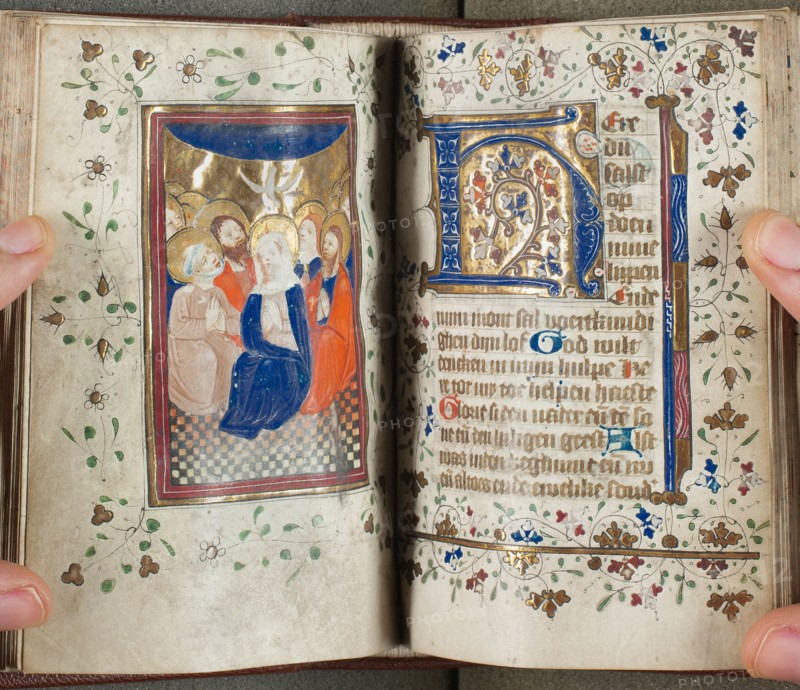 Ere
du
salst
op
doen
mine
lippen
Ende
minn mont sal voertkundi
ghen dyn lof God wilt
dencken in myn hulpe He
re tot my toe helpen haeste
Glorie si den vader en de so
ne en den heiligen geest Alst
was inden beghinne en nu
en altoes ende ewelike sond